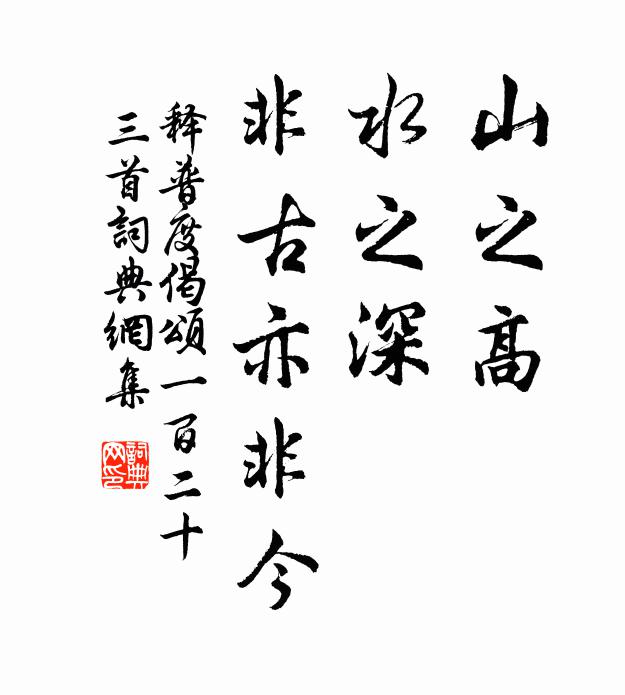 山之高
水之深
非古亦非今
释普度偈頌一百二十
三首詞典網集
詞典网印